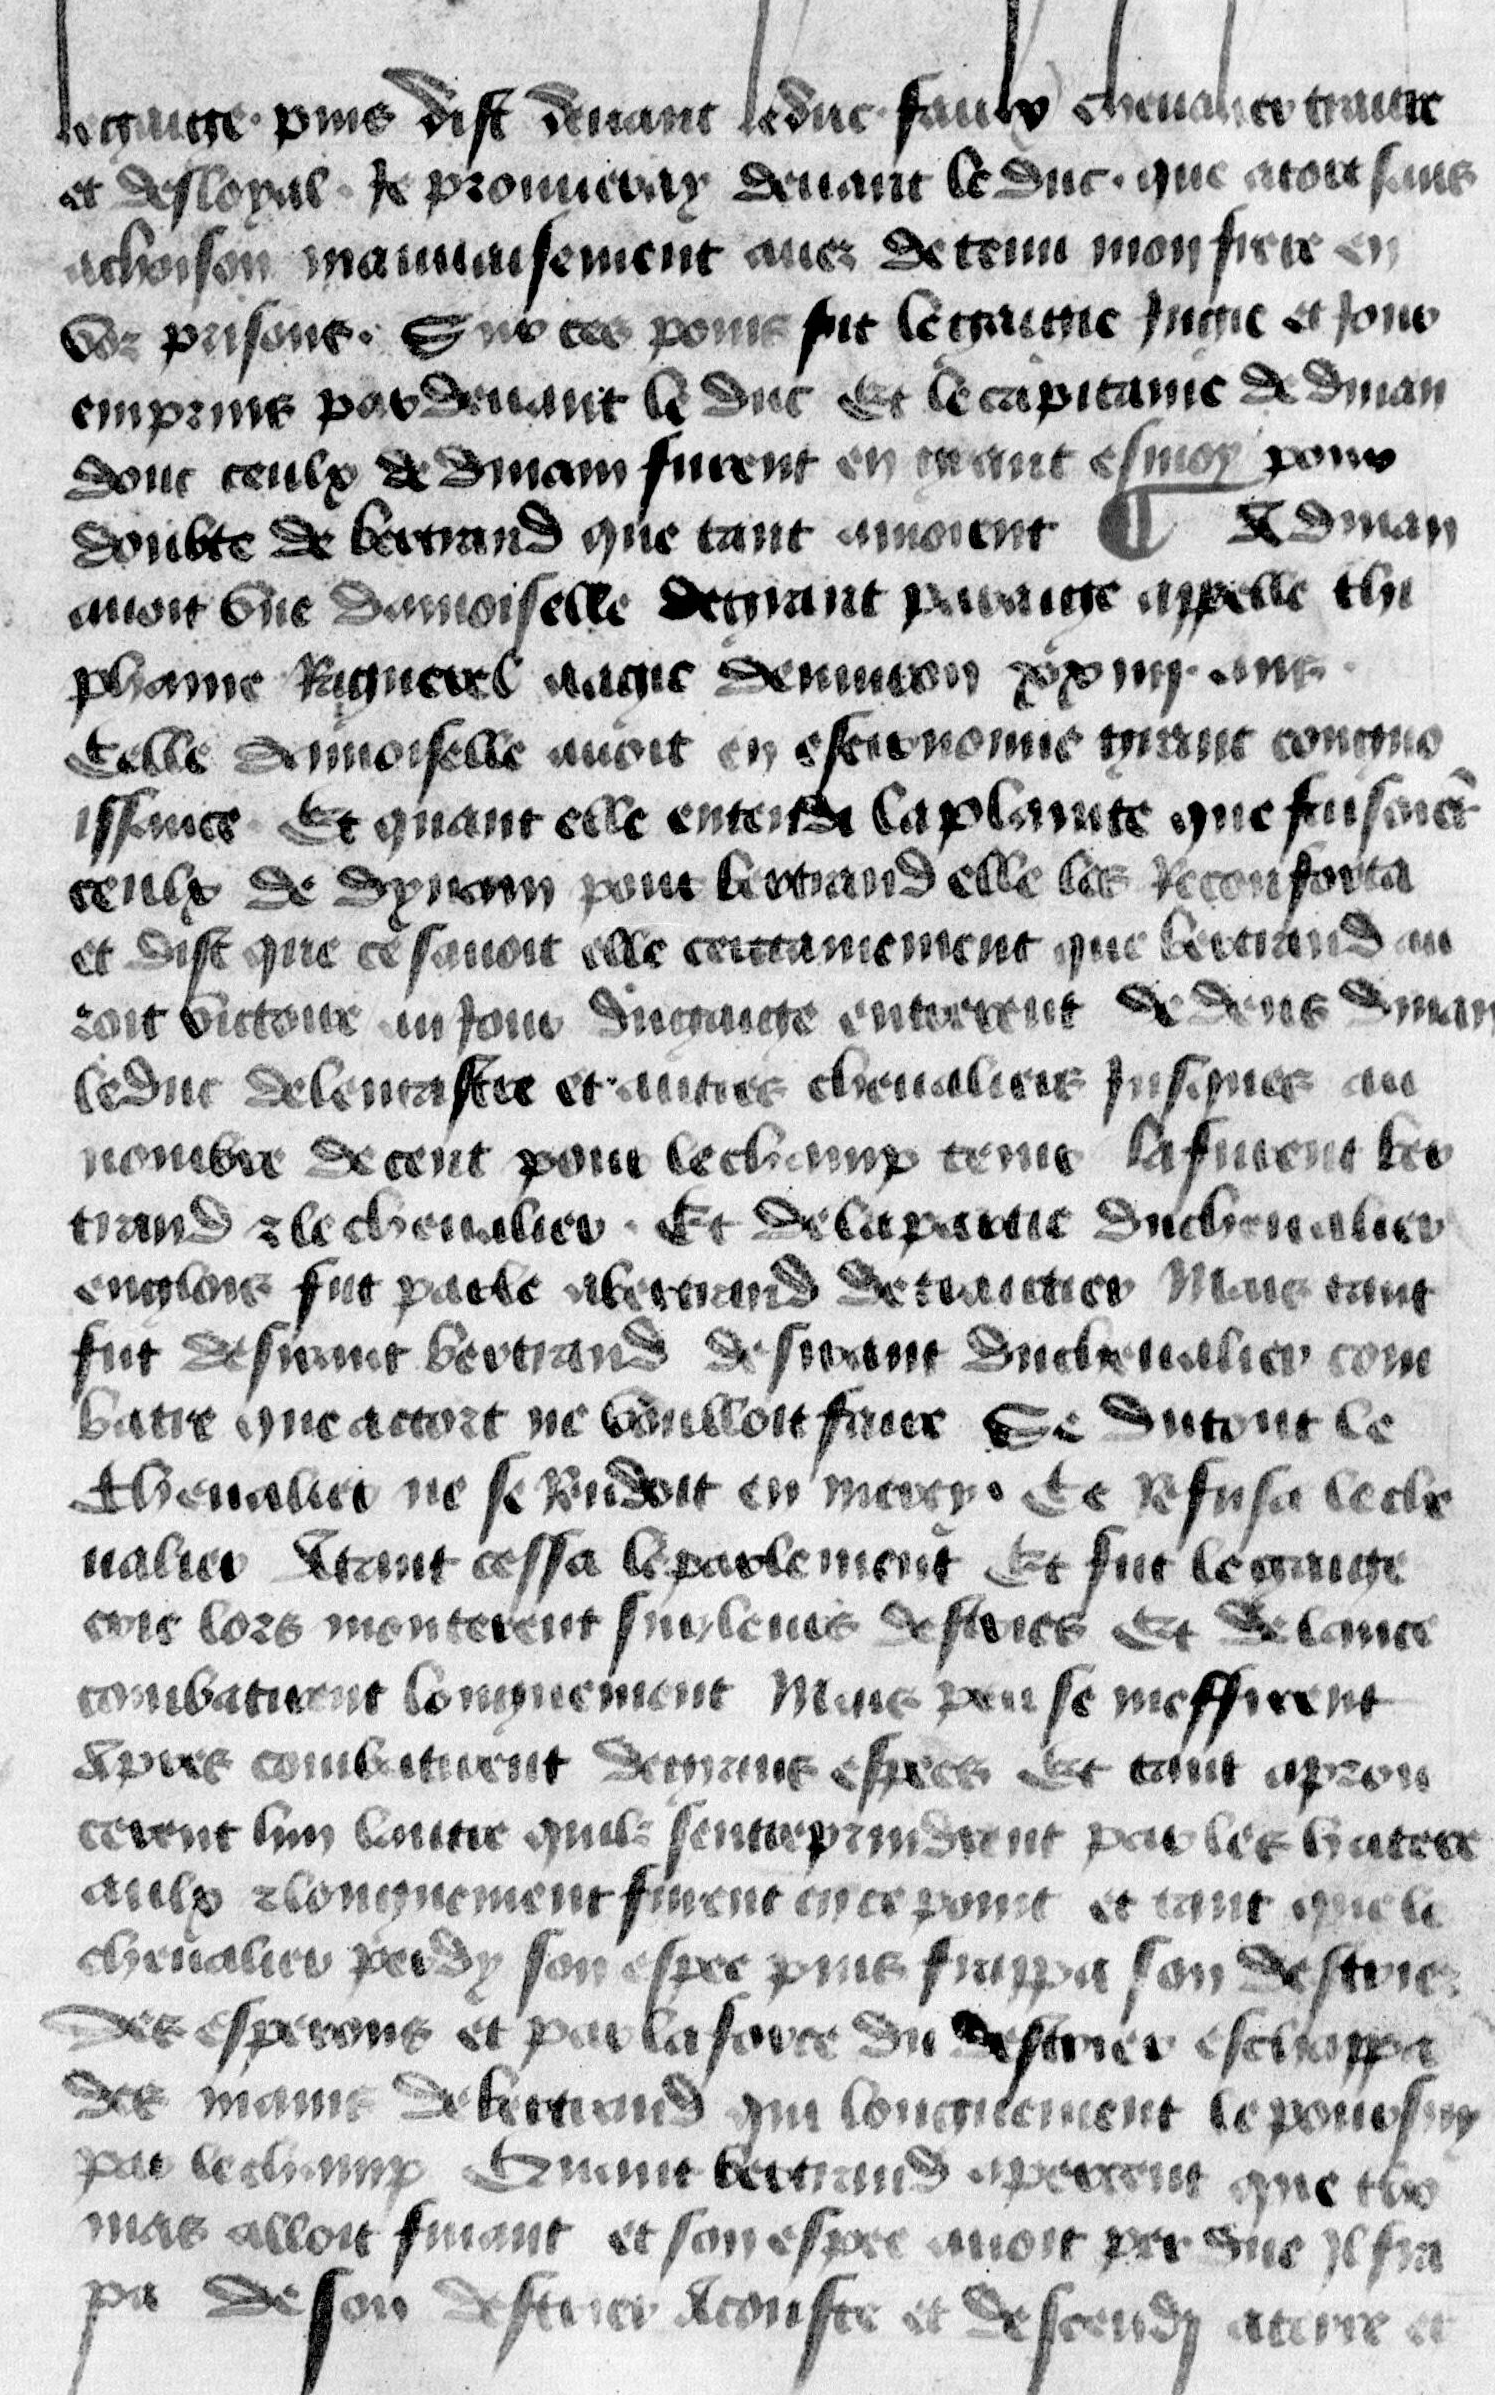 legaige · puis dist deuant le duc · faulx cheualier traitre
et desloyal · Je prouueray deuant le duc · que atort sans
achoison mauuaisement auez detenu mon frere en
voz prisons · Sur ces poins fut le gaige Jugie et Jour
emprins par deuant le duc Et le capitaine de dinan
donc ceulx de dinam furent en grant esmoy pour
doubte de bertrand que tant amoient A dinan
auoit vne damoiselle de grant paraige appelle thi
phaine Raguenel aagie denuiron xxiiij · ans ·
Celle damoiselle auoit en estronomie grant congno
issance · Et quant elle entendi la plainte que faisoiēt
ceulx de dynam pour bertrand elle les Reconforta
et dist que ce sauoit elle certainement que bertrand au
roit victoire au Jour du gaige entrerent de dens dinan
le duc de lencastre et autres cheualiers Jusques au
nombre de cent pour le champ tenir la furent ber
trand z le cheualier · Et de la partie du cheualier
englois fut parle a bertrand de traictier Mais tant
fut desirant bertrand desirant du cheualier com
batre que actort ne vouloit faire Se du tout le
Cheualier ne se Rendoit en mercy · Ce Refusa le che
ualier Atant cessa le parlement Et fut le gaige
crie lors monterent sur leurs destriers Et de lance
combatirent longuement Mais peu se meffirent
Apres combatirent de grans espees Et tant aprou
cerent lun lautre quilz sentreprindrent par les hatere
aulx z longuement furent en ce point et tant que le
cheualier perdy son espee puis frappa son destrier
des esperons et par la force du destrier eschappa
des mains de bertrand qui longuement le poursuy
par le champ Quant bertrand aperceut que tho
mas alloit fuiant et son espee auoit perdue Il fra
pa de son destrier A couste et descendy a terre et